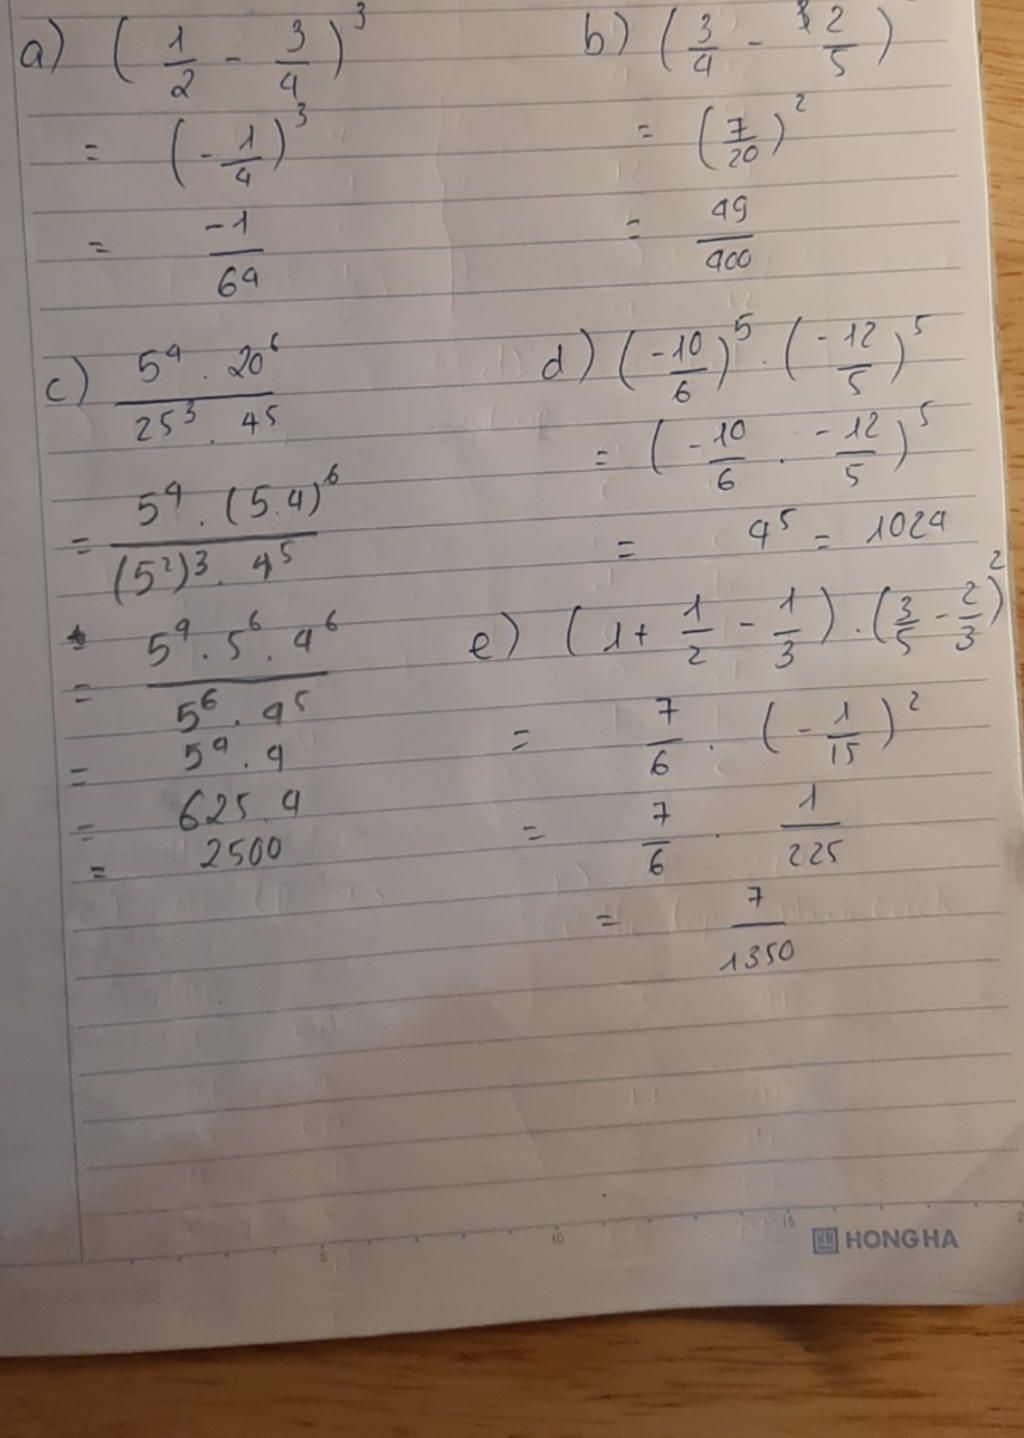 a) (1/2 - 3/4)^3
= (-1/4)^3
= -1/64
b) (3/4 - 2/5)
= (7/20)^2
= 49/400
c) 5^4 . 20^6 / 25^3 . 4^5
= 5^4 . (5.4)^6 / (5^2)^3 . 4^5
= 5^4 . 5^6 . 4^6 / 5^6 . 4^5
= 5^4 . 4
= 625 . 4
= 2500
d) (-10/6)^5 . (-12/5)^5
= (-10/6 . -12/5)^5
= 4^5 = 1024
e) (1 + 1/2 - 1/3) . (3/5 - 2/3)^2
= 7/6 . (-1/15)^2
= 7/6 . 1/225
= 7/1350
5 10 15
HONG HA